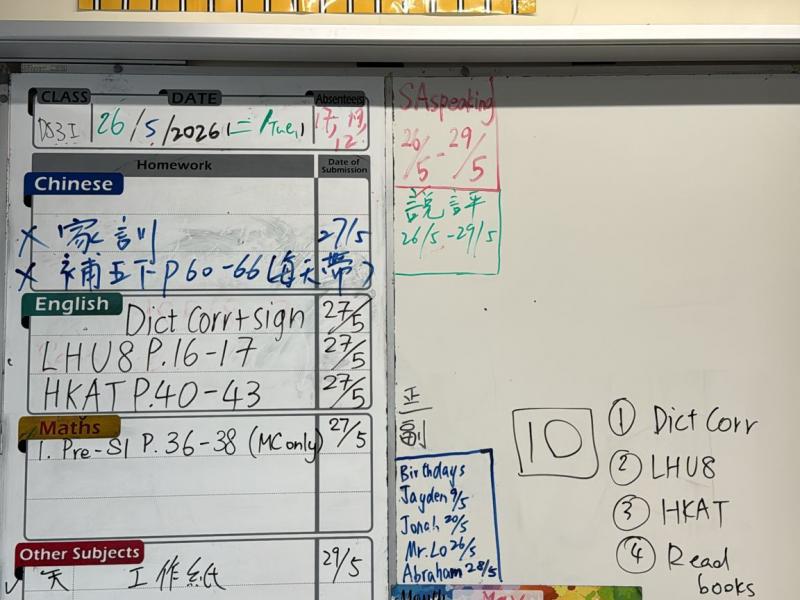 CLASS DATE Absentees
26/5/2026 (二/Tue.) 17, 19, 12
Homework Date of Submission
Chinese
× 家訓 27/5
× 補五下P60-66(每天帶)
English
Dict Corr+sign 27/5
LHU8 P.16-17 27/5
HKAT P.40-43 27/5
Maths
1. Pre-S1 P. 36-38 (MC only) 27/5
Other Subjects
工作紙 29/5
SAspeaking
26/5-29/5
說評
26/5-29/5
正
副
Birthdays
Jayden 9/5
Jonah 20/5
Mr.Lo 26/5
Abraham 28/5
Month
10
① Dict Corr
② LHU8
③ HKAT
④ Read
books